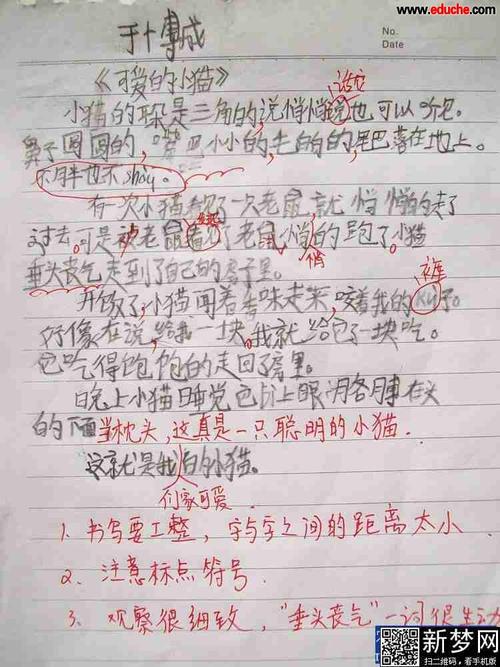 www.eduche.com
No.
Date
于卜博成
《可爱的小猫》
话它
小猫的朵是三角的,说悄悄说也可以听包。
鼻子圆圆的,嘴巴小小的,毛的的,尾巴落在地上。
不月半也不shou。
有一次小猫看了一只老鼠,就悄悄的走了
过去。可是被老鼠看了老鼠悄的跑了。小猫
悄
垂头丧气走到了自己的房子里。
裤
开饭了,小猫闻着香味走来,咬着我的Ku子。
好像在说,给我一块,我就给它了一块吃。
它吃得饱饱的走回了房里。
晚上小猫睡觉它闭上眼
的下面当枕头,这真是一只聪明的小猫。
这就是我白的小猫。
们家可爱
1. 书写要工整,字与字之间的距离太小
2. 注意标点符号
3. 观察很细致,"垂头丧气"一词很生动
新梦网
扫二维码,看手机版